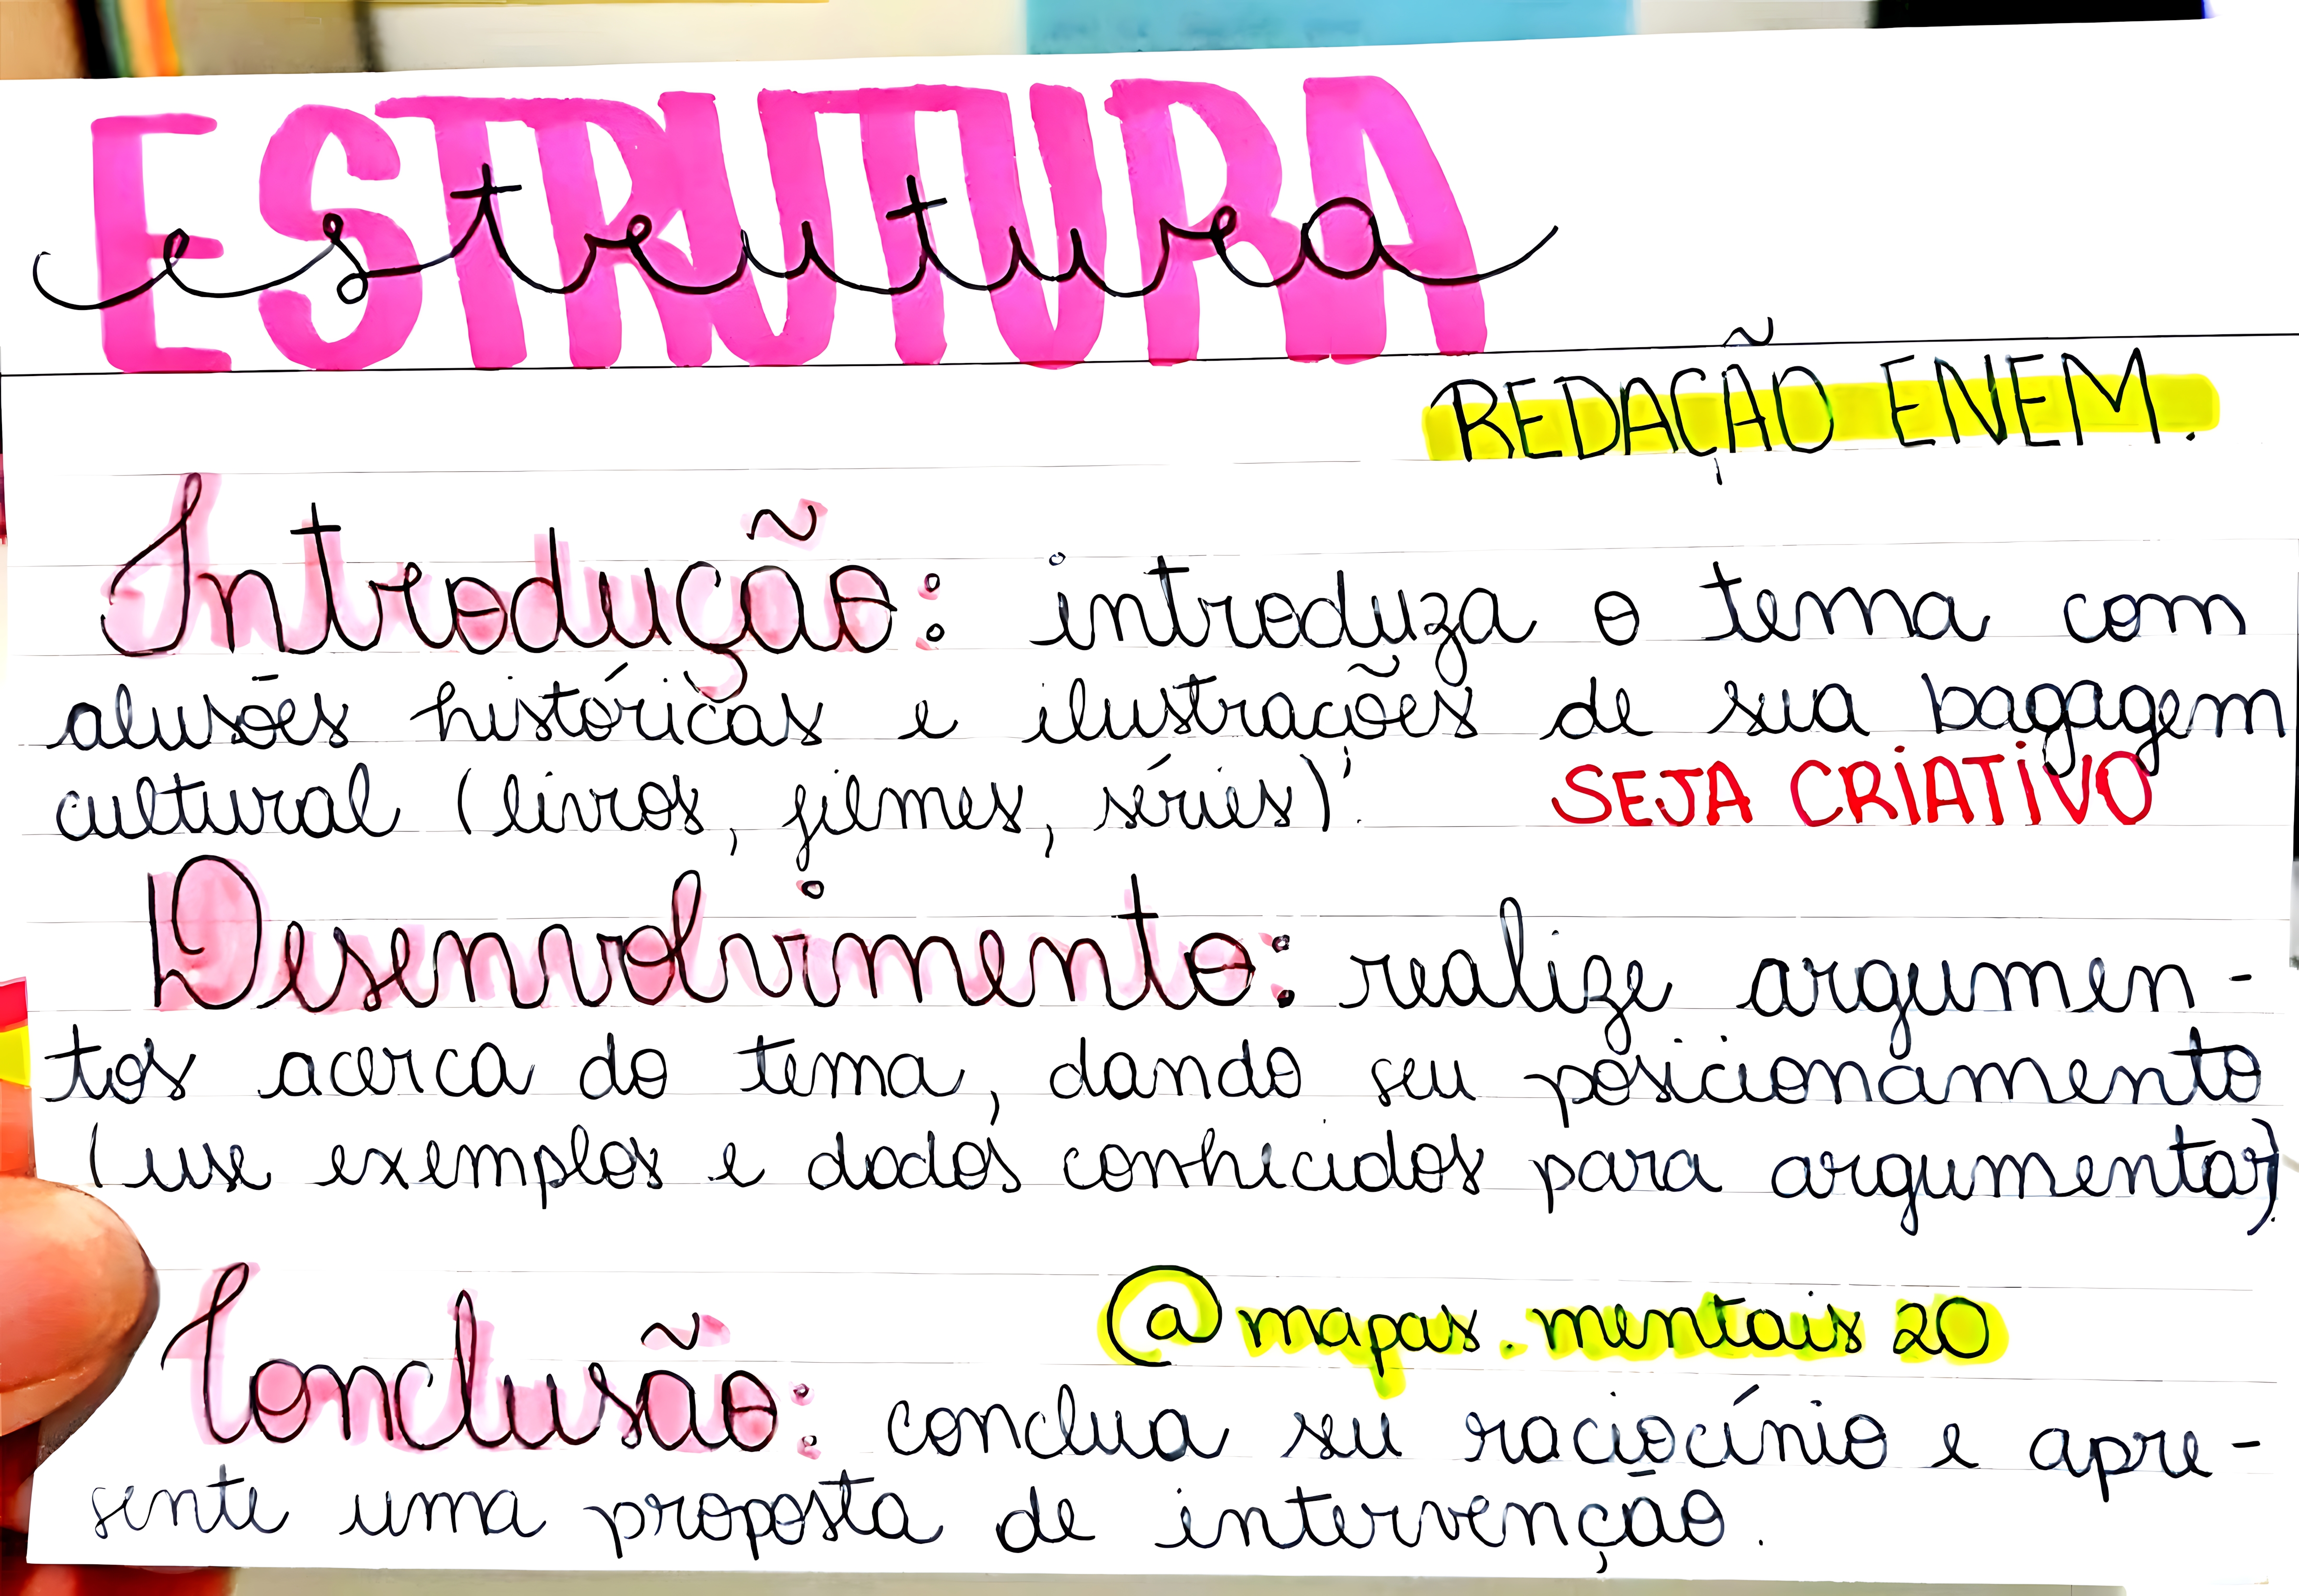 ESTRUTURA
estrutura
REDAÇÃO ENEM.
Introdução: introduza o tema com
alusões históricas e ilustrações de sua bagagem
cultural (livros, filmes, séries)! SEJA CRIATIVO
Desenvolvimento: realize argumen-
tos acerca do tema, dando seu posicionamento
(use exemplos e dados conhecidos para argumentar).
@mapas.mentais20
Conclusão: conclua seu raciocínio e apre-
sente uma proposta de intervenção.